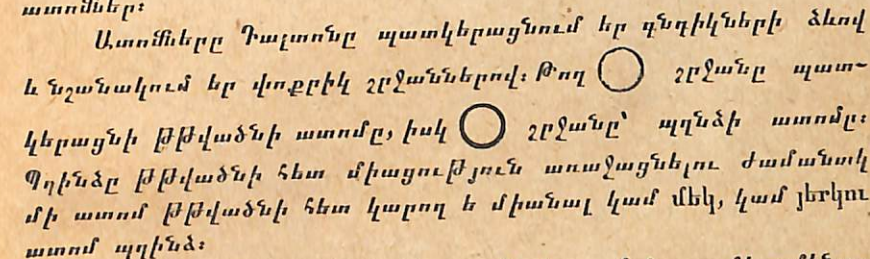 ատոմներ:
Ատոմները Դալտոնը պատկերացնում եր գնդիկների ձևով
և նշանակում եր փոքրիկ շրջաններով: Թող ◯ շրջանը պատ-
կերացնի թթվածնի ատոմը, իսկ ◯ շրջանը՝ պղնձի ատոմը:
Պղինձը թթվածնի հետ միացություն առաջացնելու ժամանակ
մի ատոմ թթվածնի հետ կարող ե միանալ կամ մեկ, կամ յերկու
ատոմ պղինձ: